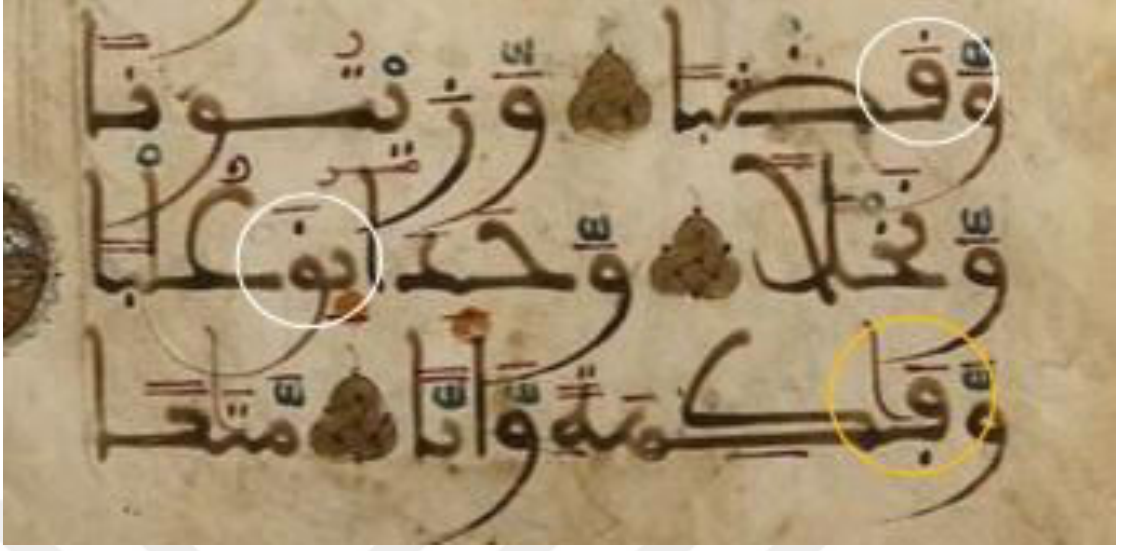 وَّقَضْبًا وَّزَيْتُونًا
وَّنَخْلًا وَّحَدَآئِقَ غُلْبًا
وَّفَٰكِهَةً وَّأَبًّا مَّتَٰعًا